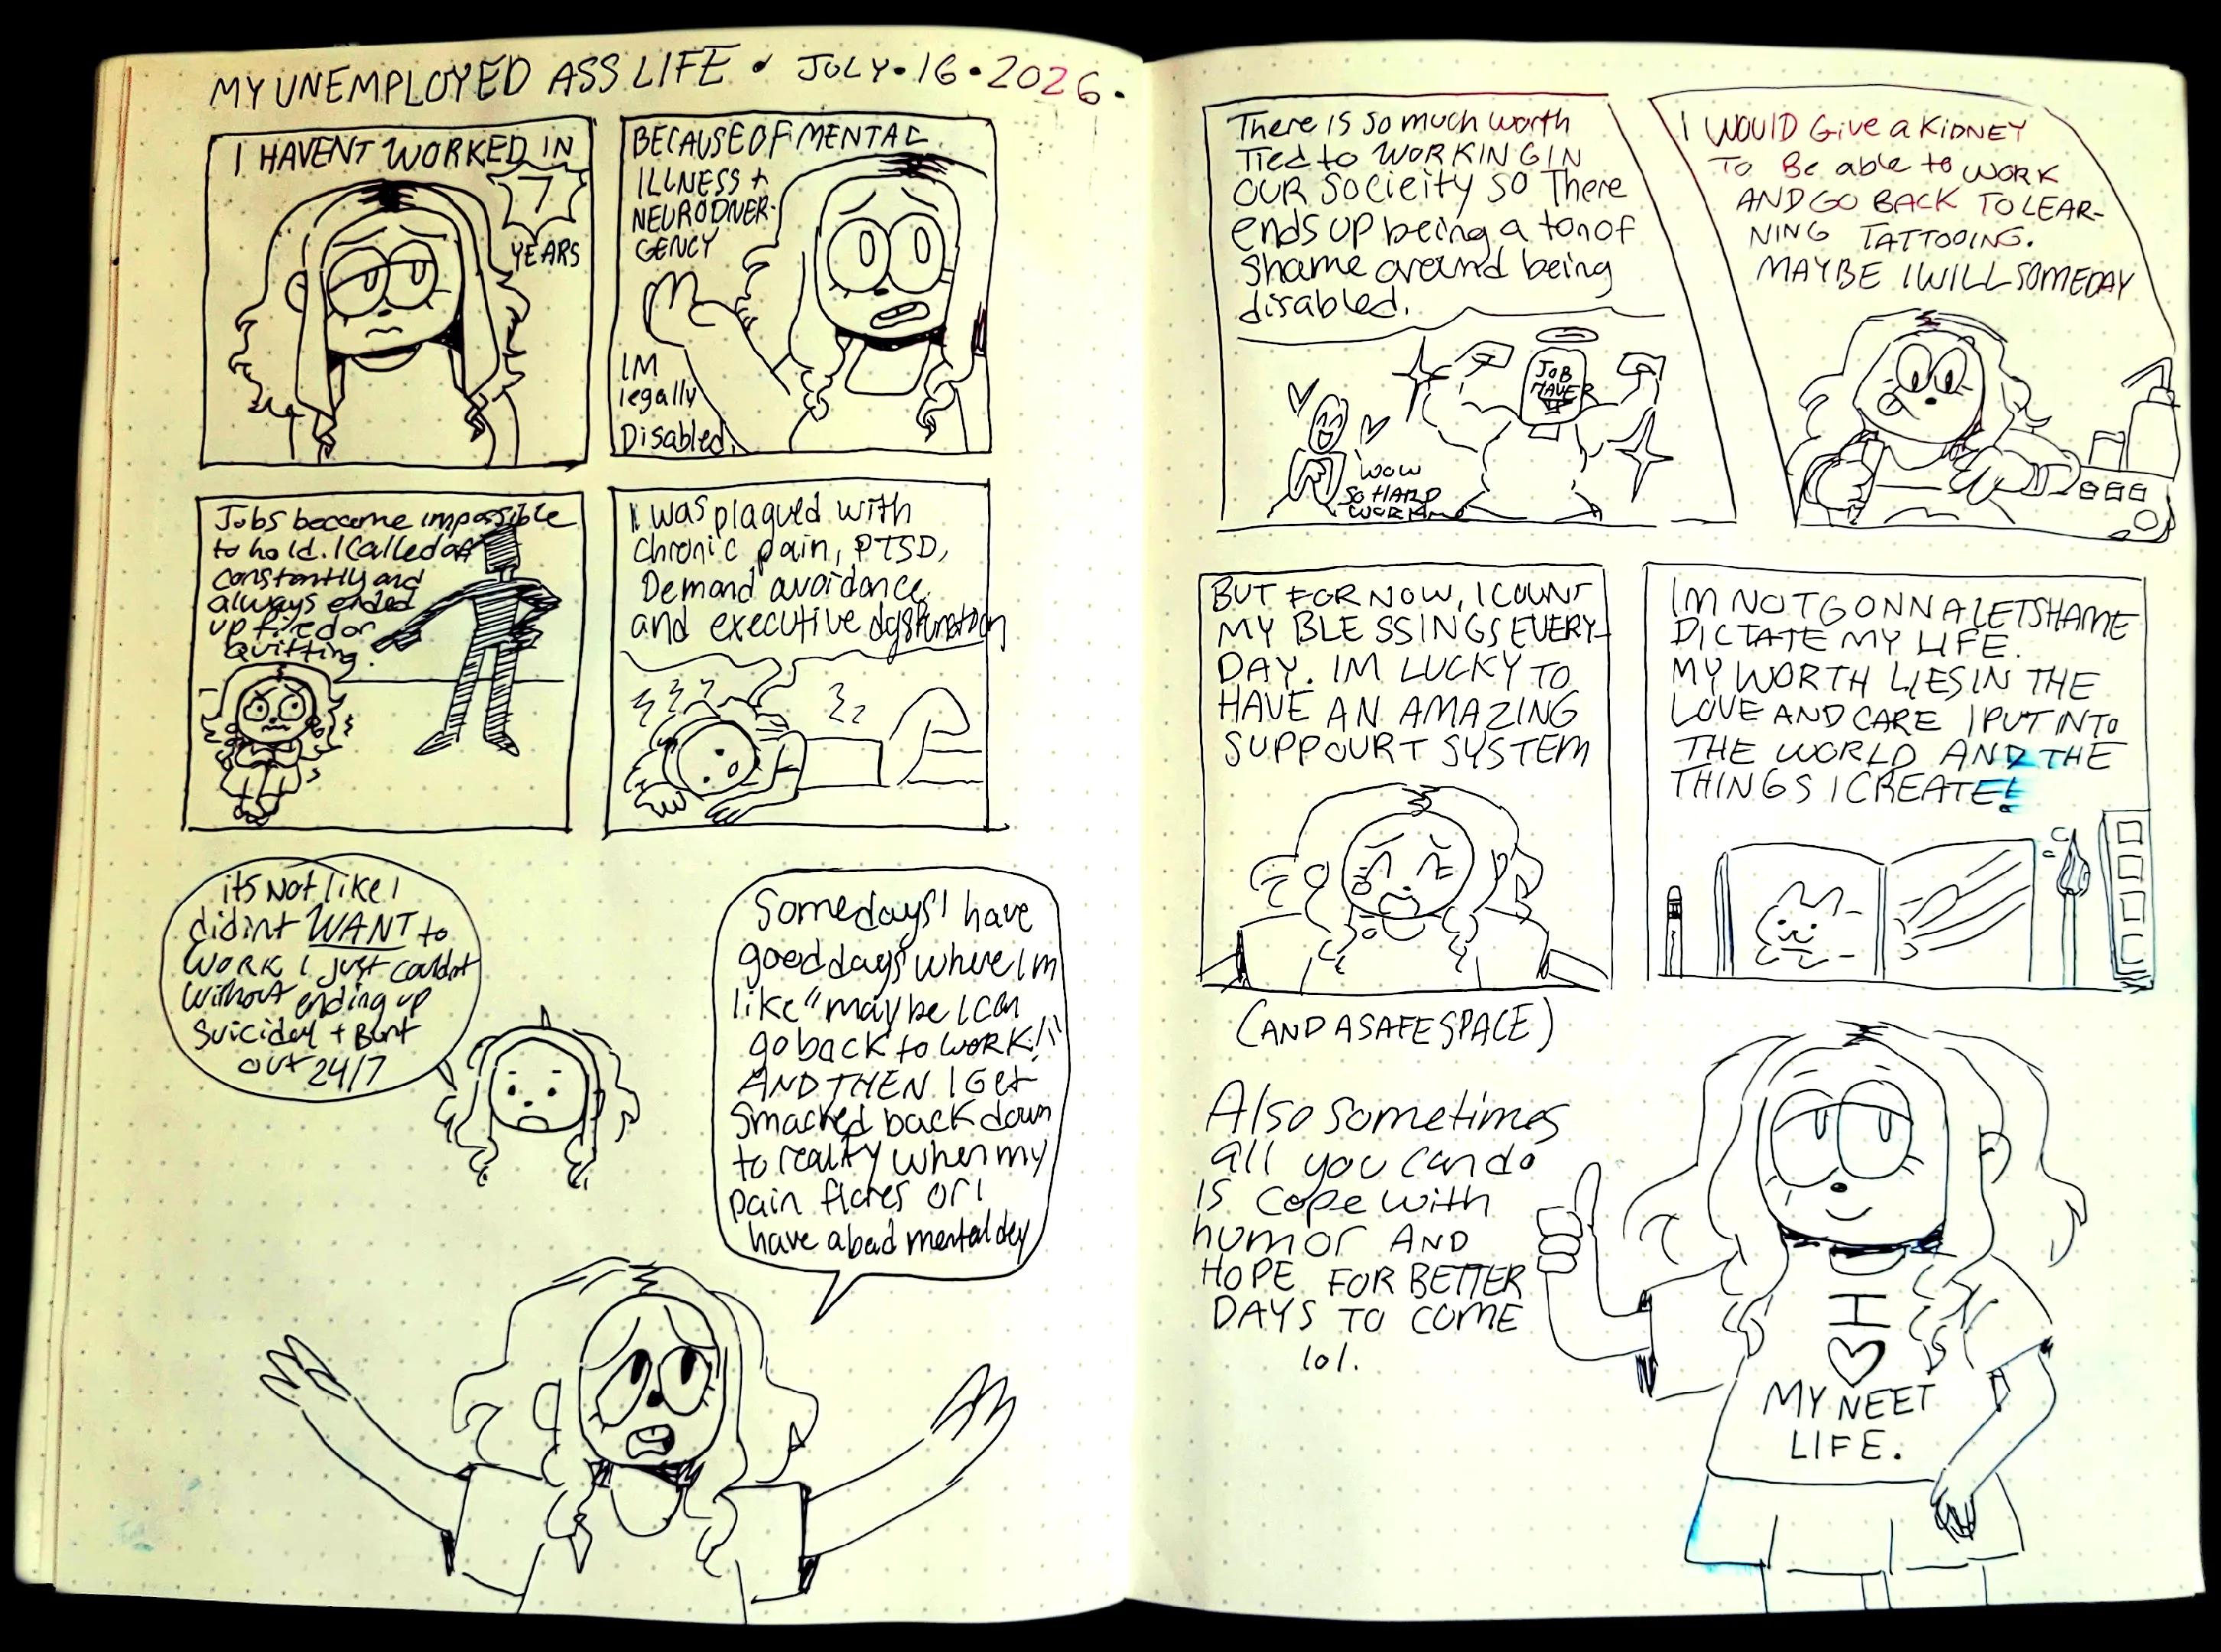 MY UNEMPLOYED ASS LIFE • JULY • 16 • 2026.
I HAVENT WORKED IN
7
YEARS
BECAUSE OF MENTAL
ILLNESS +
NEURODIVER-
GENCY
IM
legally
Disabled.
Jobs become impossible
to hold. I Called off
constantly and
always ended
up fired or
Quitting.
I was plagued with
chronic pain, PTSD,
Demand avoidance
and executive dysfunction
its Not like I
didint WANT to
WORK I just couldnt
without ending up
Suicidal + Burnt
out 24/7
Some days I have
good days where Im
like "maybe I can
go back to WORK!"
AND THEN I Get
smacked back down
to reality when my
pain flares or I
have a bad mental day
There is so much worth
Tied to WORKING IN
OUR Socieity so There
ends up being a ton of
shame around being
disabled.
JOB
HAVER
WOW
SO HARD
WORKING
I WOULD Give a KIDNEY
To Be able to WORK
AND GO BACK TO LEAR-
NING TATTOOING.
MAYBE I WILL SOMEDAY
BUT FOR NOW, I COUNT
MY BLESSINGS EVERY-
DAY. IM LUCKY TO
HAVE AN AMAZING
SUPPOURT SYSTEM
(AND A SAFE SPACE)
IM NOT GONNA LET SHAME
DICTATE MY LIFE.
MY WORTH LIES IN THE
LOVE AND CARE I PUT INTO
THE WORLD AND THE
THINGS I CREATE!
Also sometimes
all you can do
is cope with
humor AND
HOPE FOR BETTER
DAYS TO COME
lol.
I
♡
MY NEET
LIFE.